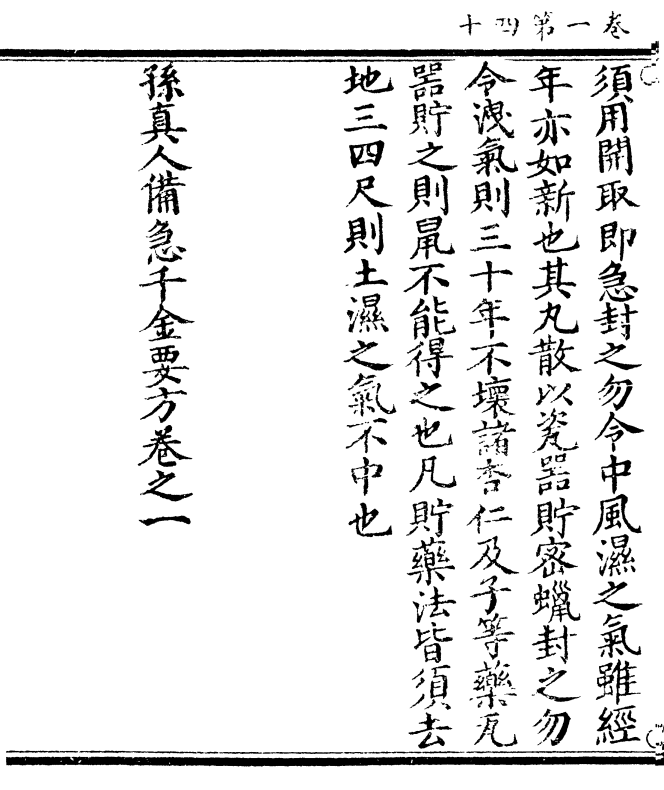 卷一第四十
須用開取即急封之勿令中風濕之氣雖經
年亦如新也其丸散以瓷器貯密蠟封之勿
令洩氣則三十年不壞諸杏仁及子等藥瓦
器貯之則鼠不能得之也凡貯藥法皆須去
地三四尺則土濕之氣不中也
孫真人備急千金要方卷之一